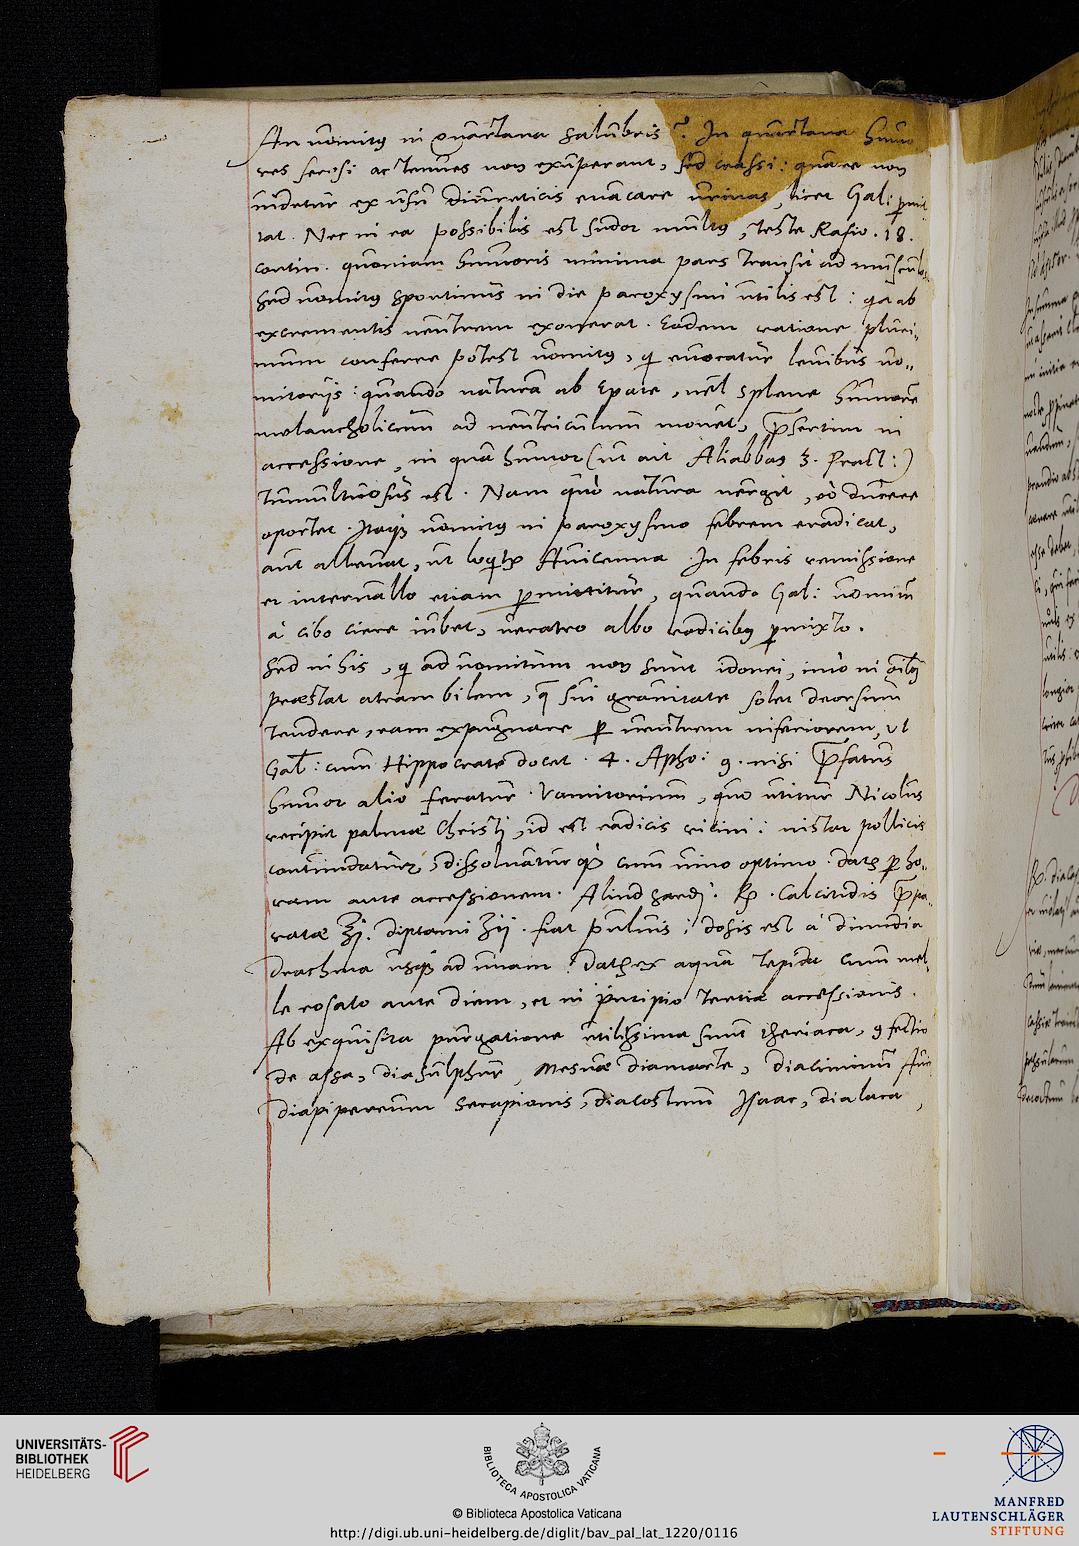 An vomitus in quartana salubris? In quartana humo
res serosi ac tenues non exuperant, sed crassi: quare non
videtur ex usu diureticis evacare urinas, licet Gal: permit
tat. Nec in ea possibilis est sudor multus, teste Rasio. 18.
contin. quoniam humoris minima pars transit ad musculos
sed vomitus spontinus in die paroxysmi utilis est: qa ab
excrementis ventrem exonerat. Eadem ratione pluri-
mum conferre potest vomitus, qi evocatur lenibus vo-
mitorijs: quando natura ab Epate, vel splene humore
melancholicum ad ventriculum movet, prsertim in
accessione, in qua humor (ut ait Aliabbas 3. Pract:)
tumultuosus est. Nam quò natura vergit, eò ducere
oportet. Itaqs vomitus in paroxysmo febrem eradicat,
aut allevat, ut loqtr Avicenna. In febris remissione
et intervallo etiam permittitur, quando Gal: vomitu
à cibo ciere iubet, veratro albo radicibus permixto.
Sed in his, qi ad vomitum non sunt idonei, imò in oibus
praestat atram bilem, que sui gravitate solet deorsum
tendere, eam expugnare per ventrem inferiorem, ut
Gal: cum Hippocrate docet. 4. Apho: 9. nisi prfatus
humor alio feratur. Vomitorium, quo utitur Nicolus
recipit palmae Christi, id est radicis ricini: instar pollicis
contundatur, dissolvaturqs cum vino optimo. datur per ho-
ram ante accessionem. Aliud haedi. Rp. Calcitidis prpa-
ratae ʒj. diptami ʒij. fiat pulvis: dosis est à dimidia
drachma usqs ad unam. Datur ex aqua tepida cum mel
le rosato ante diem, et in principio tertiae accessionis.
Ab exquisita purgatione utilissima sunt theriaca, 9fectio
de assa, diasulphur, Mesuae diamorte, diaciminu Avi
diapipereum Serapionis, diacostum Isaac, dialaca,
UNIVERSITÄTS-
BIBLIOTHEK
HEIDELBERG
BIBLIOTECA APOSTOLICA VATICANA
© Biblioteca Apostolica Vaticana
http://digi.ub.uni-heidelberg.de/diglit/bav_pal_lat_1220/0116
MANFRED
LAUTENSCHLÄGER
STIFTUNG